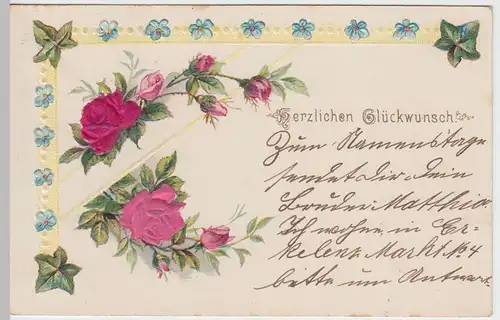 Herzlichen Glückwunsch
Zum Namenstage
sendet dir dein
Bruder Matthias.
Ich wohne in Er-
kelenz Markt No 4
bitte um Antwort.